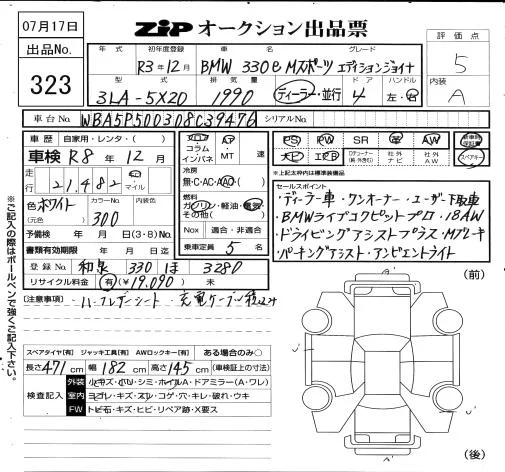 07月17日
ZIP オークション出品票
出品No.
323
年式
初年度登録
車名
グレード
R3年12月
BMW 330e Mスポーツ エディションジョイナ
型式
排気量
ドア
ハンドル
3LA-5X20
1990
ディーラー・並行
4
左・右
評価点
5
内装
A
車台No.
WBA5P500308C39476
シリアルNo.
車歴 自家用・レンタ・( )
車検 R8年12月
走行 21,482 km マイル
色 ホワイト
(元色)
カラーNo.
300
内装色
予備検 年 月 日(3・8)No.
書類有効期限 年 月 日迄
登録No. 和泉 330 ほ 3280
リサイクル料金 有(¥19,090) 未
フロア
コラム
インパネ
AT
MT
速
冷房
無・C・AC・AAC
燃料
ガソリン・軽油・電気
その他( )
Nox 適合・非適合
乗車定員 5 名
PS PW SR 革 AW
ナビ エアB
社外
ナビ
社外
AW
新車時
保証書
スペアキー
※上記太枠内は標準装備品
セールスポイント
・ディーラー車・ワンオーナー・ユーザー下取車
・BMWライブコクピットプロ・18AW
・ドライビングアシストプラス・Mブレーキ
・パーキングアシスト・アンビエントライト
注意事項
ハーフレザーシート・充電ケーブル積込み
(前)
スペアタイヤ[有] ジャッキ工具[有] AWロックキー[有] ある場合のみ○
長さ 471 cm 幅 182 cm 高さ 145 cm (車検証上の寸法)
検査記入
外装 小キズ・小W・シミ・ホイルA・ドアミラー(A・ワレ)
室内 ヨゴレ・キズ・スレ・コゲ・穴・キレ・破れ・ウキ
FW トビ石・キズ・ヒビ・リペア跡・X要ス
(後)
※ご記入の際はボールペンで強くご記入下さい。